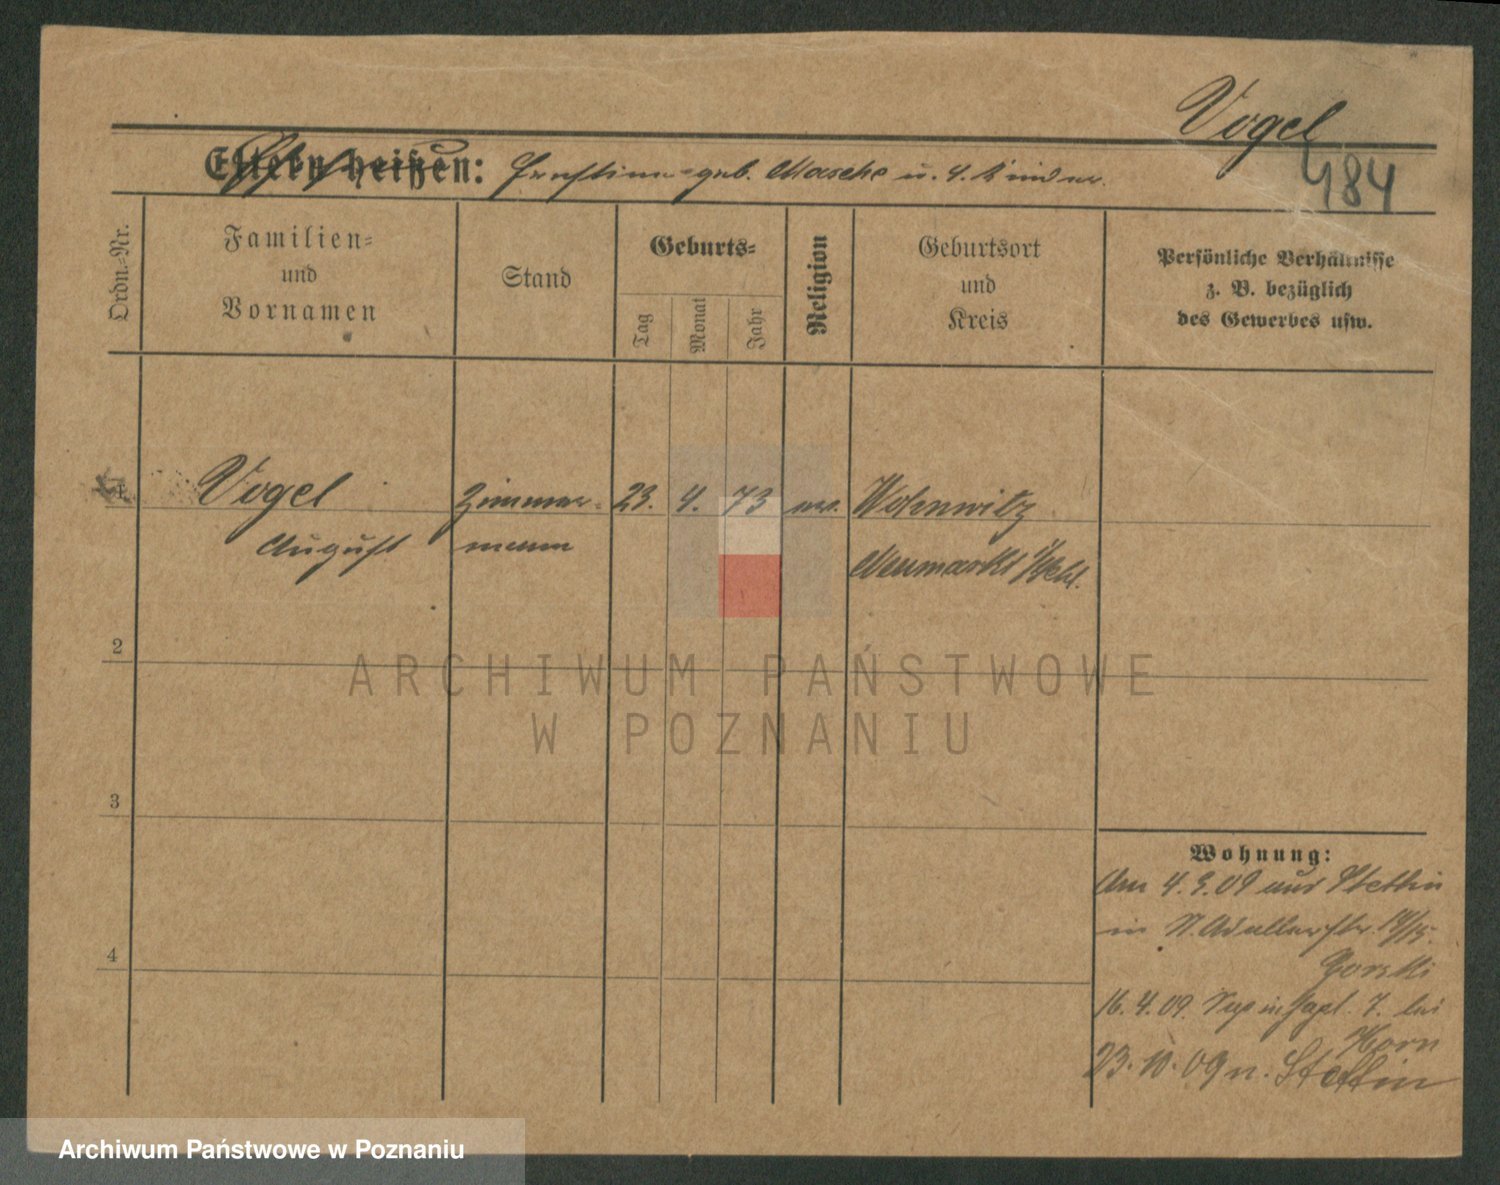 Vogel
484
Eltern heißen: Ernstine geb. Masche u. 4 Kinder.
Ordn.-Nr.
Familien-
und
Vornamen
Stand
Geburts-
Tag
Monat
Jahr
Religion
Geburtsort
und
Kreis
Persönliche Verhältnisse
z. B. bezüglich
des Gewerbes usw.
1
Vogel
August
Zimmer-
mann
23. 4. 73
Neumarkt
2
ARCHIWUM PAŃSTWOWE
W POZNANIU
3
4
Wohnung:
Am 4.3.09 aus Stettin
in
Gorski
16. 4. 09. 7. bei
Horn
23. 10. 09 n. Stettin
Archiwum Państwowe w Poznaniu